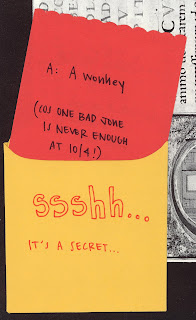 A: A wonkey
(COS ONE BAD JOKE
IS NEVER ENOUGH
AT 10/4!)
ssshh...
IT'S A SECRET...